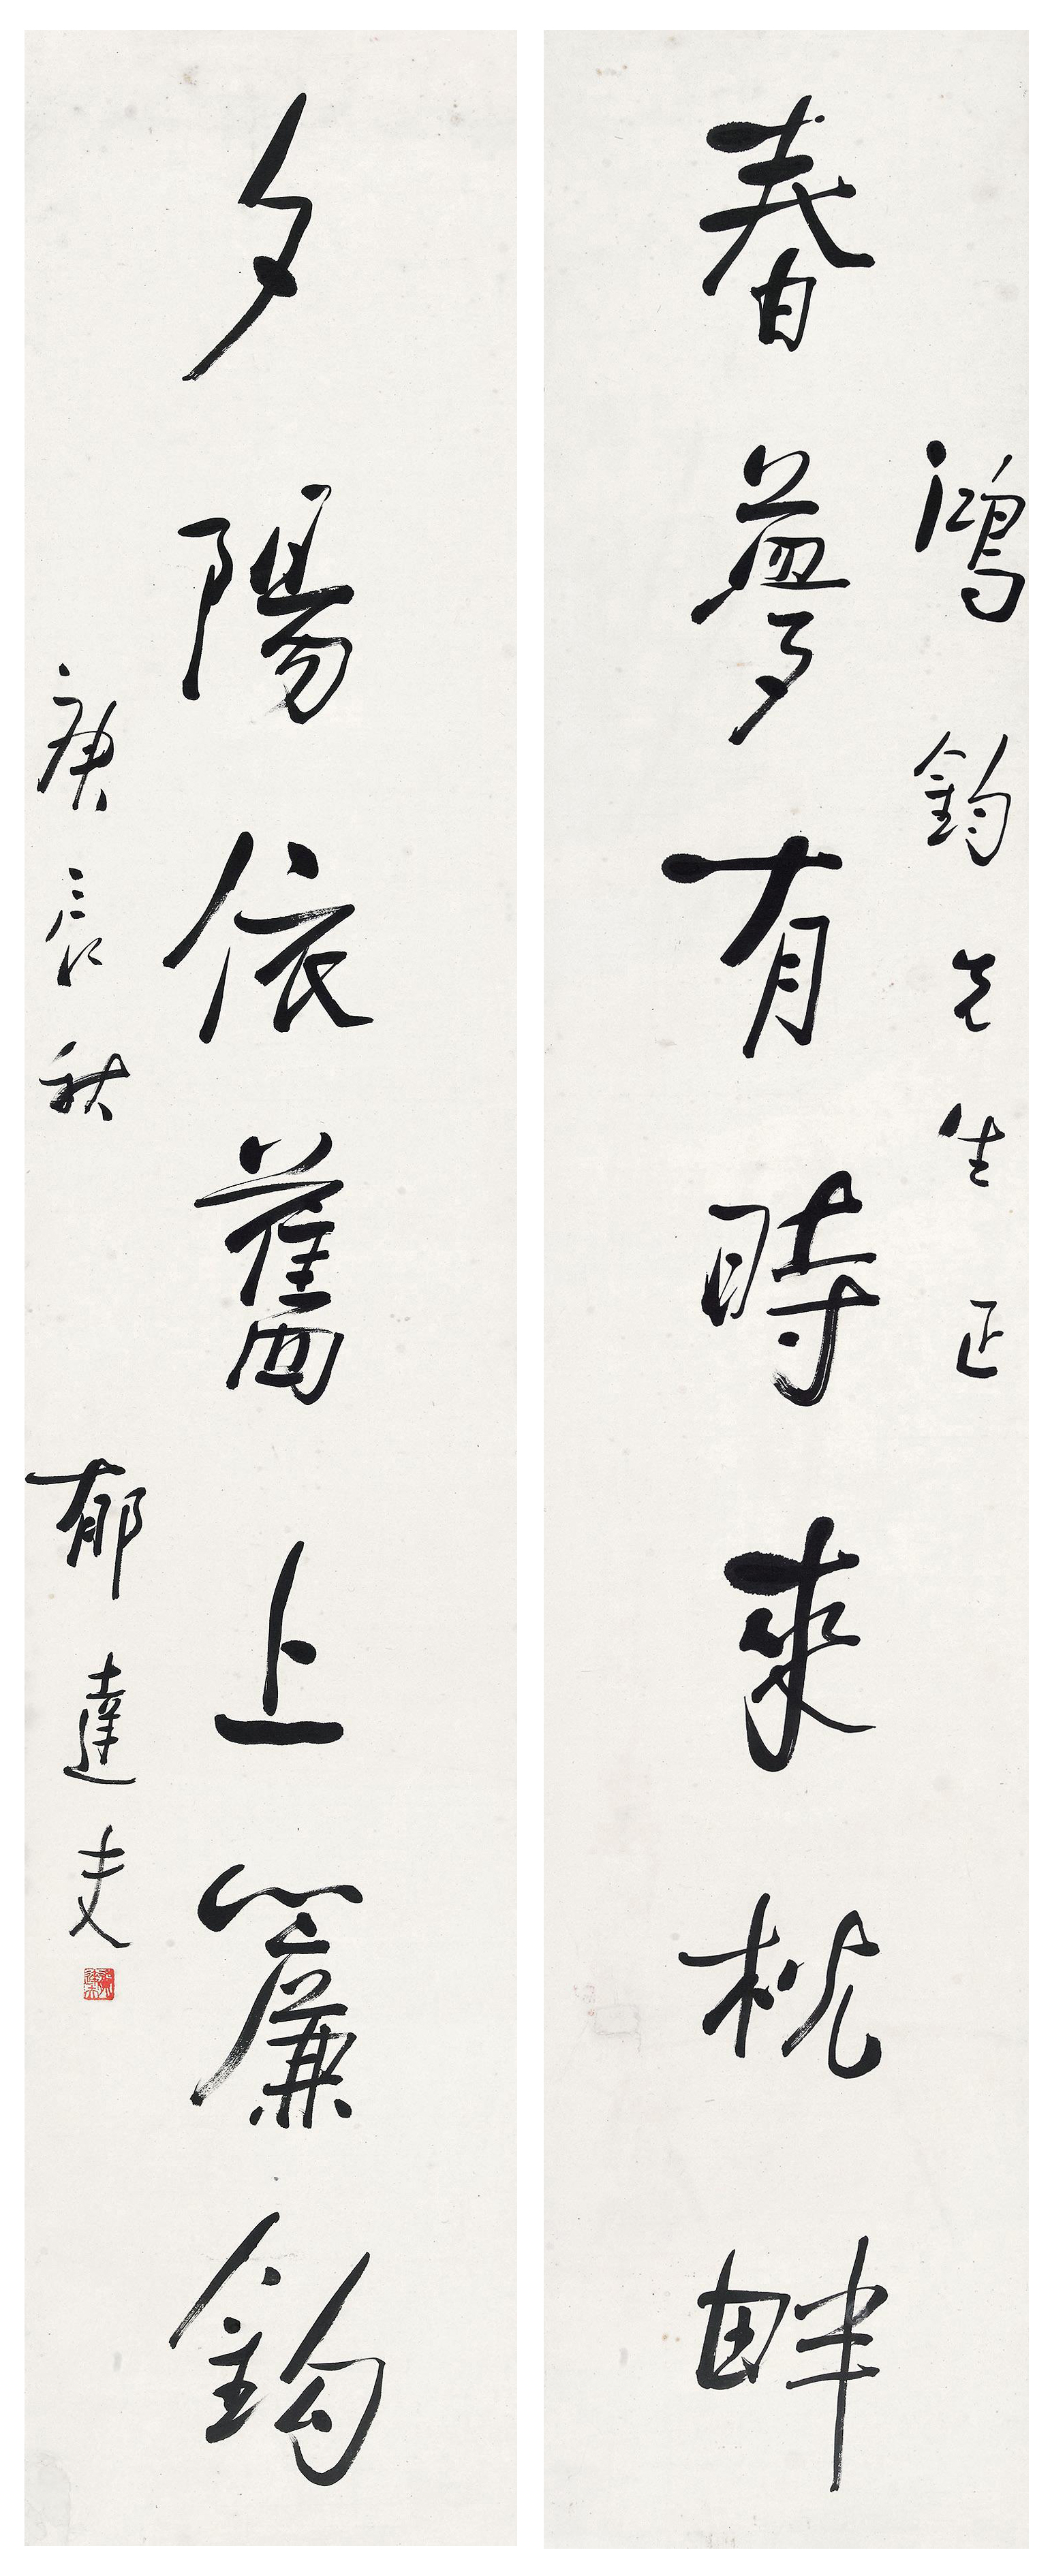 鴻鈞先生正
春夢有時來枕畔
夕陽依舊上簾鈎
庚辰秋
郁達夫